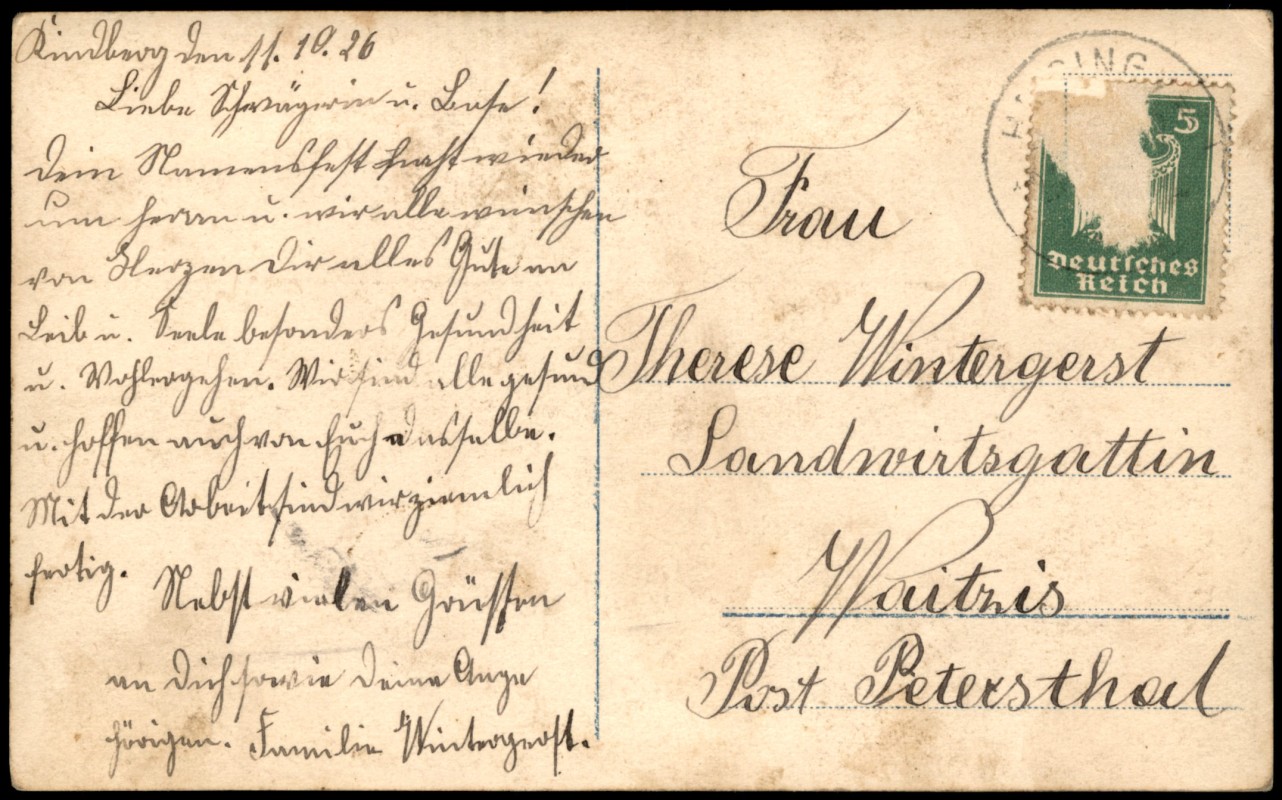 Kindberg den 11. 10. 26
Liebe Schwägerin u. Base!
Dein Namensfest steht wieder
um heran u. wir alle wünschen
von Herzen Dir alles Gute an
Leib u. Seele besonders Gesundheit
u. Wohlergehen. Wir sind alle gesund
u. hoffen auch von Euch dasselbe.
Mit der Arbeit sind wir ziemlich
fertig.
Nebst vielen Grüssen
an Dich sowie Deine Ange
hörigen. Familie Wintergerst.
5
Deutsches
Reich
Frau
Therese Wintergerst
Landwirtsgattin
Waitzis
Post Petersthal